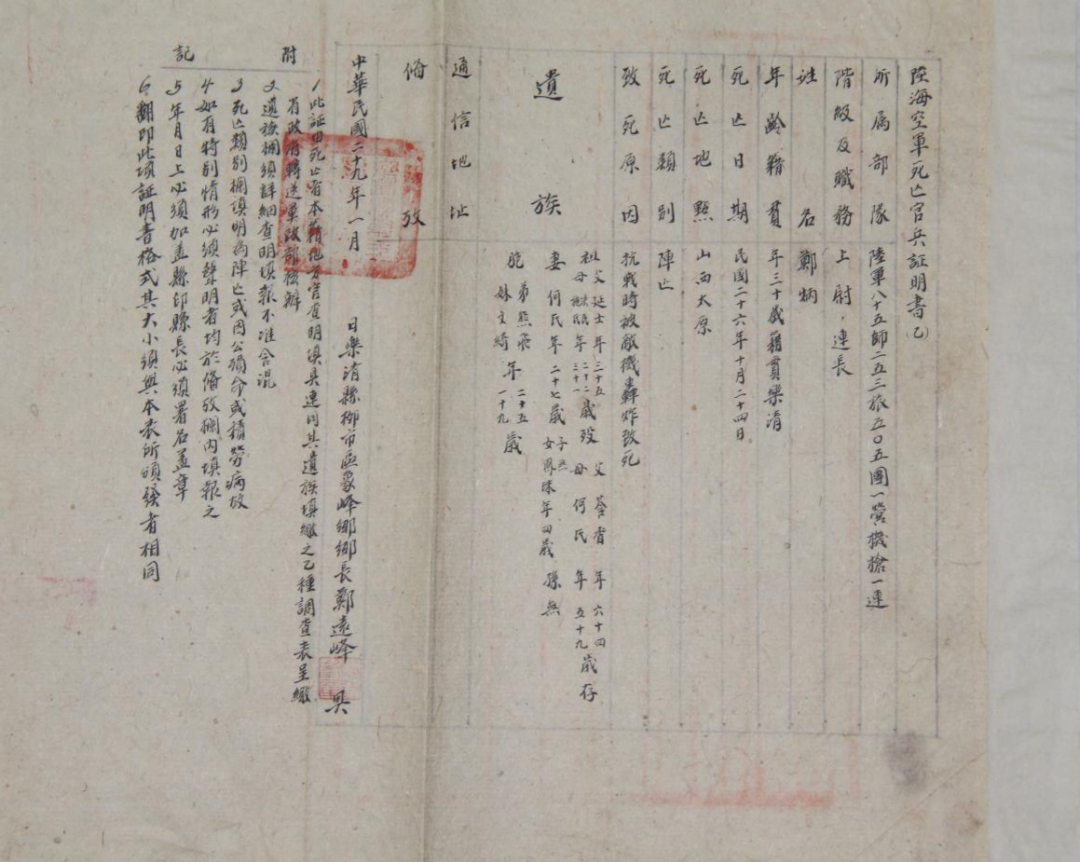 陸海空軍死亡官兵証明書(乙)
所属部隊 陸軍八十五師二五三旅五〇五團一營機槍一連
階級及職務 上尉，連長
姓名 鄭炳
年齡籍貫 年三十歲籍貫樂清
死亡日期 民國二十六年十月二十四日
死亡地點 山西太原
死亡類別 陣亡
致死原因 抗戰時被敵機轟炸致死
遺族
祖父延士年三十五 歲歿 父蒼省年六十四
祖母 年三十一 歲歿 母何氏年五十九歲存
妻何氏年二十七歲 子無 女 珠年四歲 孫無
胞弟熙飛年二十五歲
妹文綺年一十九歲
通信地址
俻攷
中華民國二十九年一月 日樂清縣柳市區象峰鄉鄉長鄭遠峰 具
附記
1 此証由死亡者本籍地方官查明填具連同其遺族填繳之乙種調查表呈繳
省政府轉送軍政部核辦
2 遺族欄須詳細查明填報不准含混
3 死亡類別欄填明為陣亡或因公殞命或積勞病故
4 如有特別情形必須聲明者均於俻攷欄內填報之
5 年月日上必須加盖縣印縣長必須署名盖章
6 翻印此項証明書格式其大小須與本表所頒發者相同